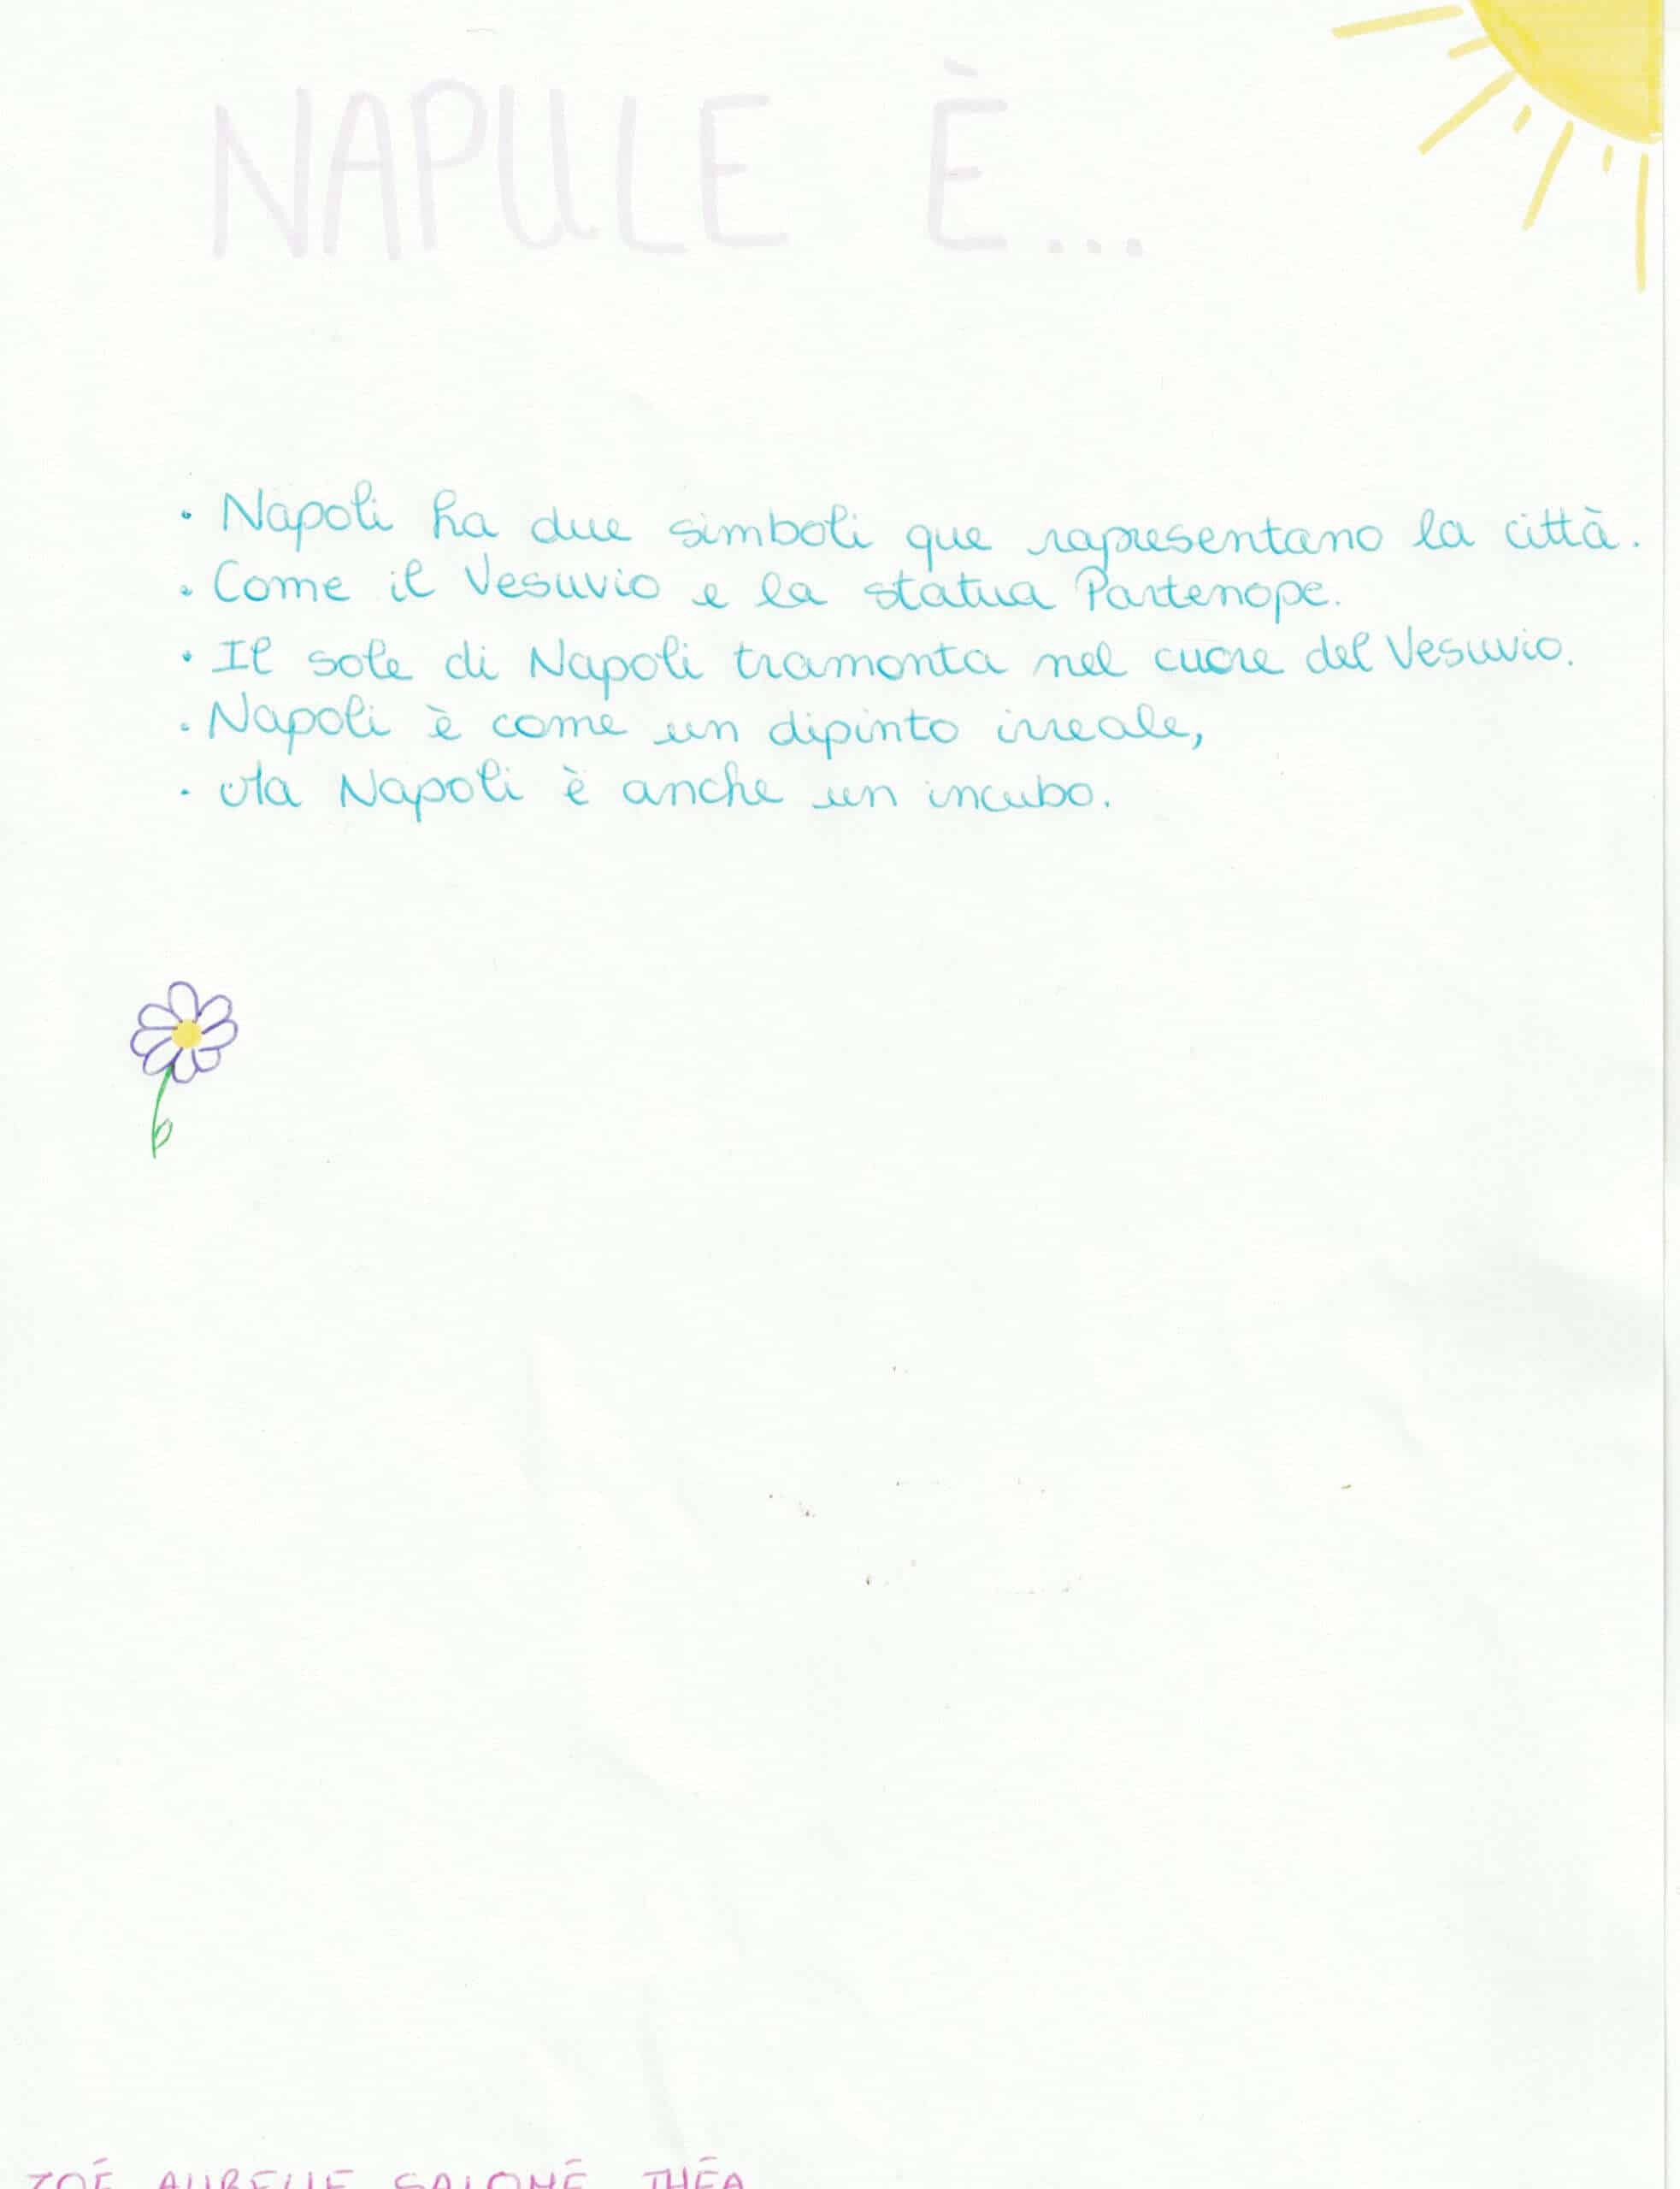 NAPULE È...
• Napoli ha due simboli que rapresentano la città.
• Come il Vesuvio e la statua Partenope.
• Il sole di Napoli tramonta nel cuore del Vesuvio.
• Napoli è come un dipinto irreale,
• Ma Napoli è anche un incubo.
ZOÉ AURELIE SALOMÉ THÉA